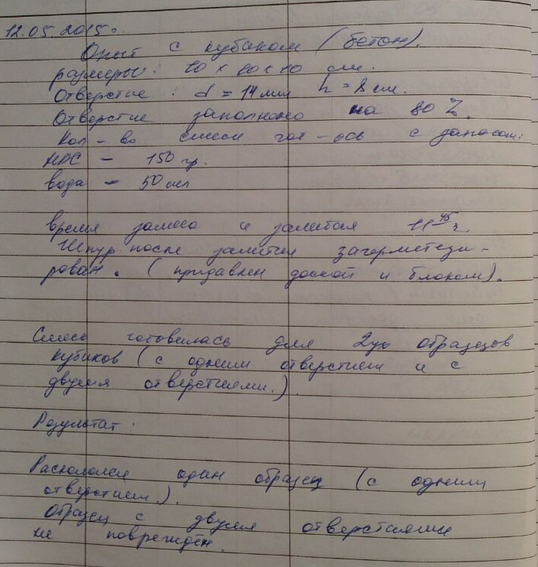 12.05.2015г.
Опыт с кубиком (бетон).
размеры: 10 х 10 х 10 см.
Отверстие: d = 14 мм h = 8 см.
Отверстие заполнено на 80 %.
Кол-во смеси гот-ось с запасом:
НРС – 150 гр.
вода – 50 мл
время замеса и залития 11 45
Шпур после залития загерметези-
рован. (придавлен доской и блоком).
Смесь готовилась для 2ух образцов
кубиков (с одним отверстием и с
двумя отверстиями.).
Результат:
Раскололся один образец (с одним
отверстием).
Образец с двумя отверстиями
не поврежден.